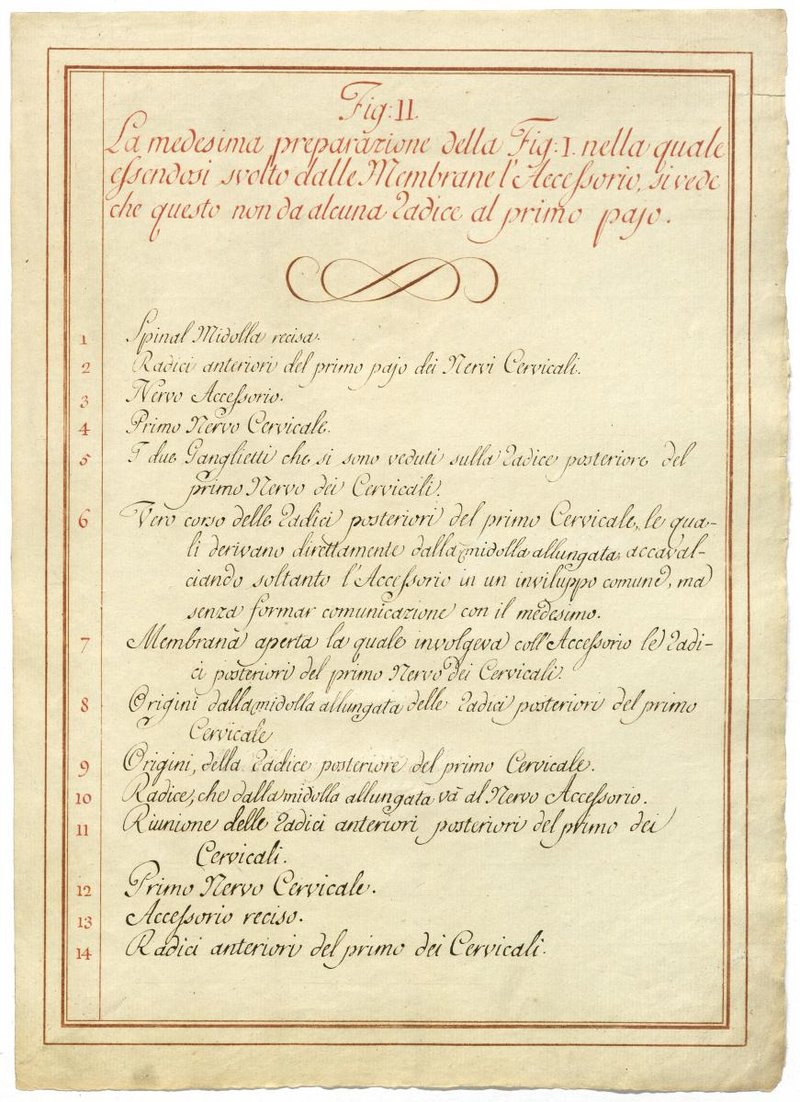 Fig: II.
La medesima preparazione della Fig: I. nella quale
essendosi svolto dalle Membrane l'Accessorio, si vede
che questo non da alcuna Radice al primo pajo.
1 Spinal Midolla recisa.
2 Radici anteriori del primo pajo dei Nervi Cervicali.
3 Nervo Accessorio.
4 Primo Nervo Cervicale.
5 I due Ganglietti che si sono veduti sulla Radice posteriore del
primo Nervo dei Cervicali.
6 Vero corso delle Radici posteriori del primo Cervicale, le qua-
li derivano direttamente dalla midolla allungata, accaval-
ciando soltanto l'Accessorio in un inviluppo comune, ma
senza formar comunicazione con il medesimo.
7 Membrana aperta la quale involgeva coll'Accessorio le Radi-
ci posteriori del primo Nervo dei Cervicali.
8 Origini dalla midolla allungata delle Radici posteriori del primo
Cervicale
9 Origini, della Radice posteriore del primo Cervicale.
10 Radice, che dalla midolla allungata và al Nervo Accessorio.
11 Riunione delle Radici anteriori posteriori del primo dei
Cervicali.
12 Primo Nervo Cervicale.
13 Accessorio reciso.
14 Radici anteriori del primo dei Cervicali.